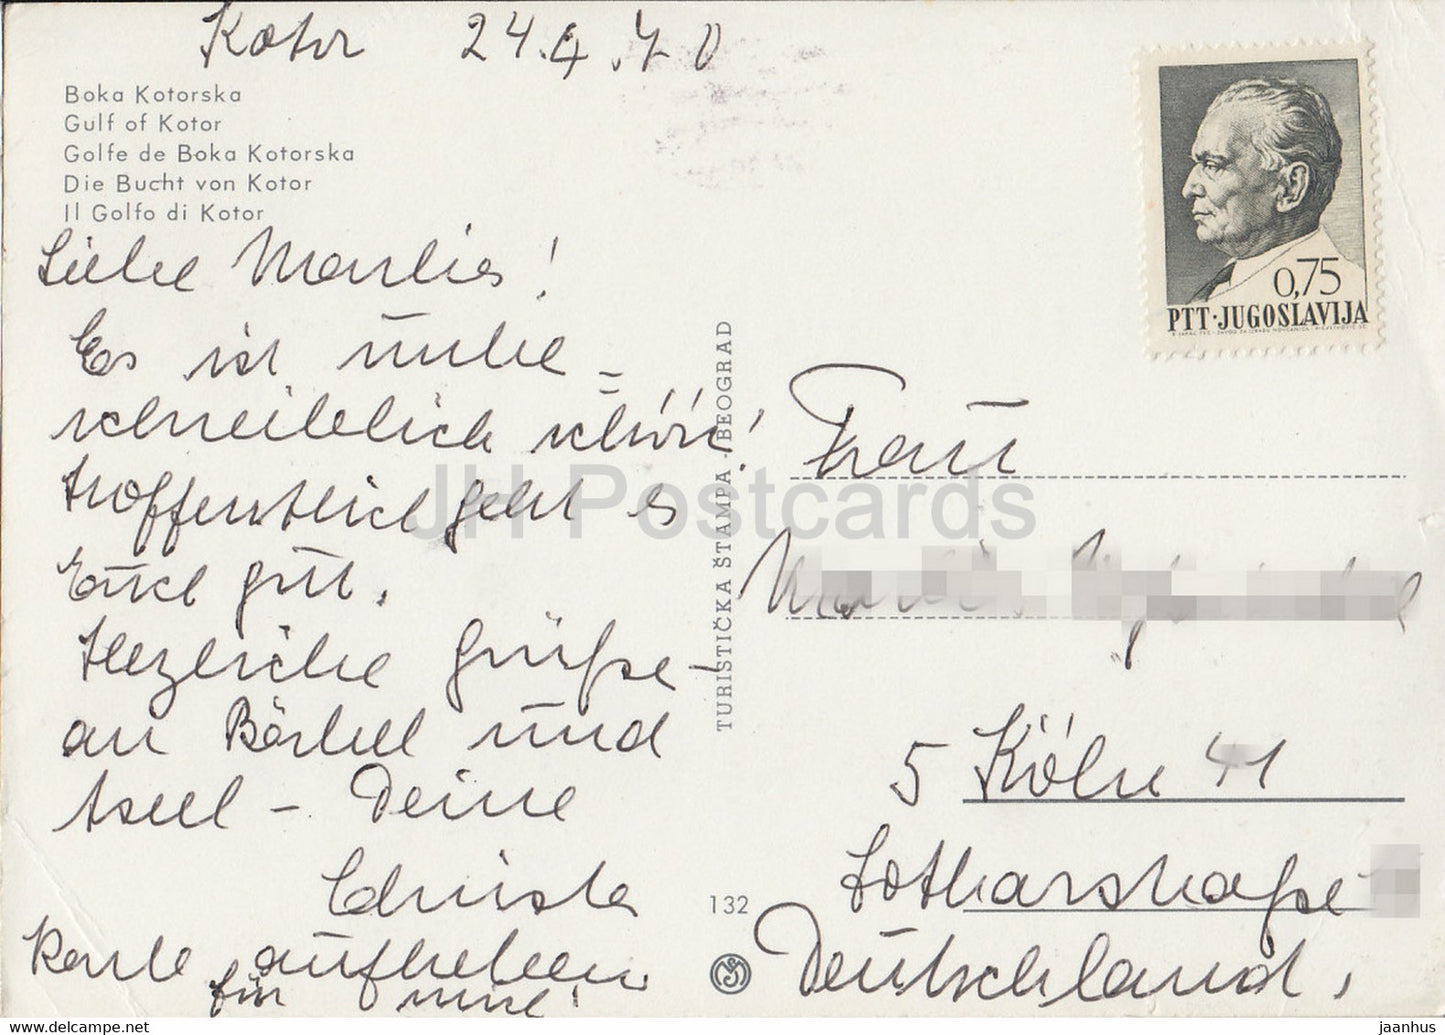 Kotor 24.4.70
Boka Kotorska
Gulf of Kotor
Golfe de Boka Kotorska
Die Bucht von Kotor
Il Golfo di Kotor
Liebe Marlies!
Es ist unbe=
schreiblich schön!
Hoffentlich geht es
Euch gut.
Herzliche Grüße
an Bärbel und
Axel – Deine
Christa
Karte aufheben
für mich!
TURISTIČKA ŠTAMPA - BEOGRAD
132
0,75
PTT·JUGOSLAVIJA
Frau
5 Köln 41
Lotharstraße
Deutschland.
JH Postcards
www.delcampe.net
jaanhus